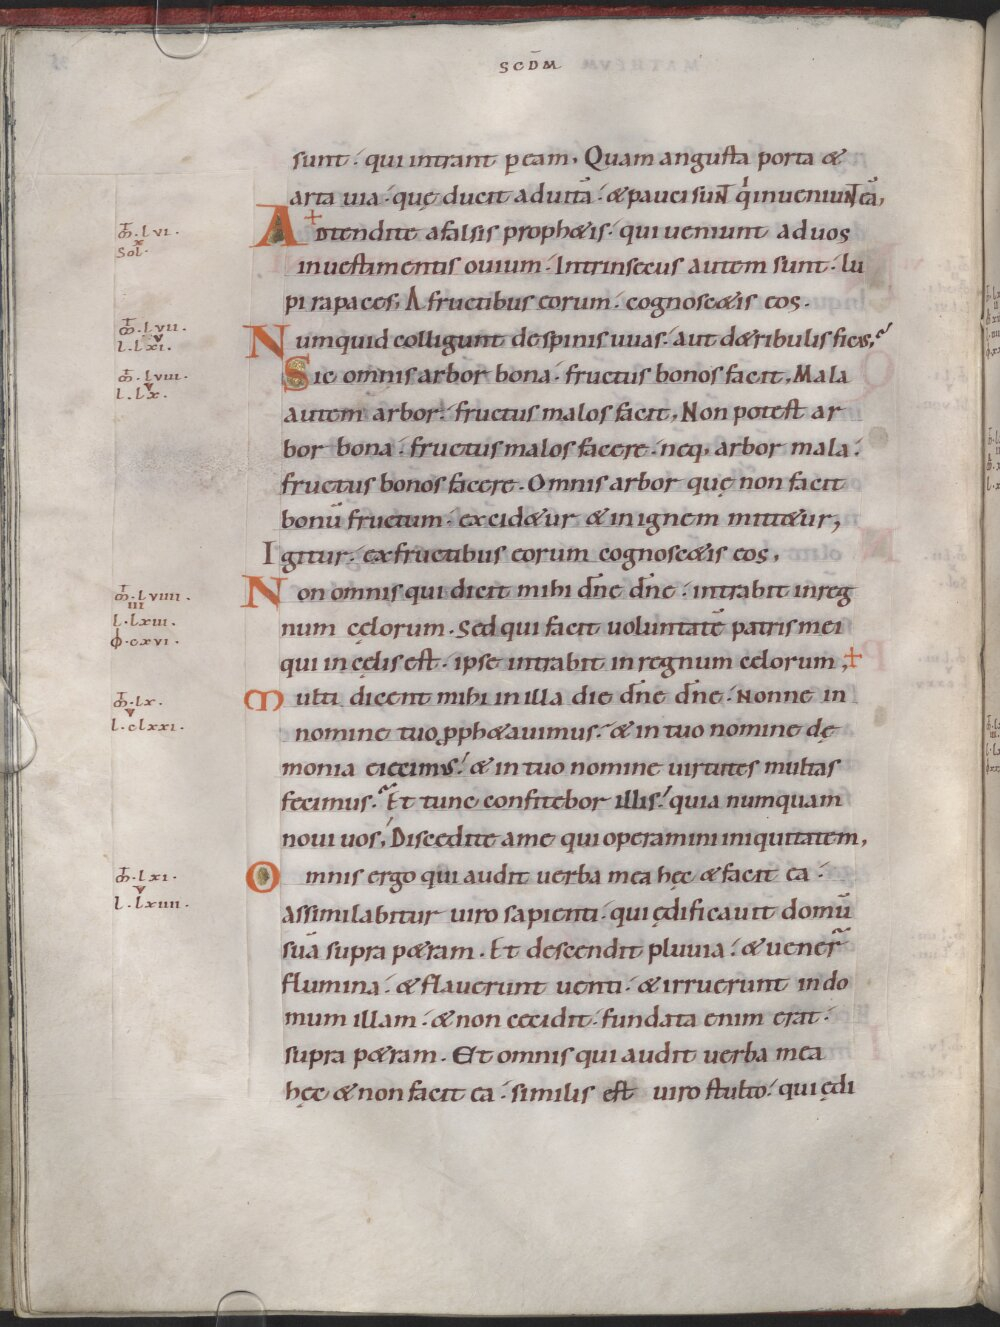 SCD̄M
sunt· qui intrant p eam. Quam angusta porta &
arta uia· quę ducit ad uitā· & pauci sunt q̇ inueniunt eā,
m̄·lvi·
Sol·
Adtendite a falsis proph&is· qui ueniunt ad uos
in uestimentis ouium· Intrinsecus autem sunt· lu
pi rapaces; A fructibus eorum· cognosc&is eos·
m̄·lvii·
l·lxi·
v
Numquid colligunt de spinis uuas· aut de tribulis ficus;
m̄·lviii·
l·lx·
v
Sic omnis arbor bona· fructus bonos facit, Mala
autem arbor· fructus malos facit, Non potest ar
bor bona· fructus malos facere· neq, arbor mala·
fructus bonos facere· Omnis arbor quę non facit
bonū fructum· excid&ur & in ignem mitt&ur,
Igitur· ex fructibus eorum cognosc&is eos,
m̄·lviiii·
iii
l·lxiii·
φ·cxvi·
Non omnis qui dicit mihi dn̄e dn̄e· intrabit in reg
num cęlorum· Sed qui facit uoluntatē patris mei
qui in cęlis est· ipse intrabit in regnum celorum,+
m̄·lx·
v
l·clxxi·
Multi dicent mihi in illa die dn̄e dn̄e· Nonne in
nomine tuo pph&auimus· & in tuo nomine dę
monia eiecimus· & in tuo nomine uirtutes multas
fecimus· Et tunc confitebor illis· quia numquam
noui uos, Discedite a me qui operamini iniquitatem,
m̄·lxi·
v
l·lxiiii·
Omnis ergo qui audit uerba mea hęc & facit ea·
assimilabitur uiro sapienti· qui ędificauit domū
suā supra p&ram· Et descendit pluuia· & uener̄
flumina· & flauerunt uenti· & irruerunt in do
mum illam· & non cecidit· fundata enim erat·
supra p&ram· Et omnis qui audit uerba mea
hęc & non facit ea· similis est uiro stulto· qui ędi